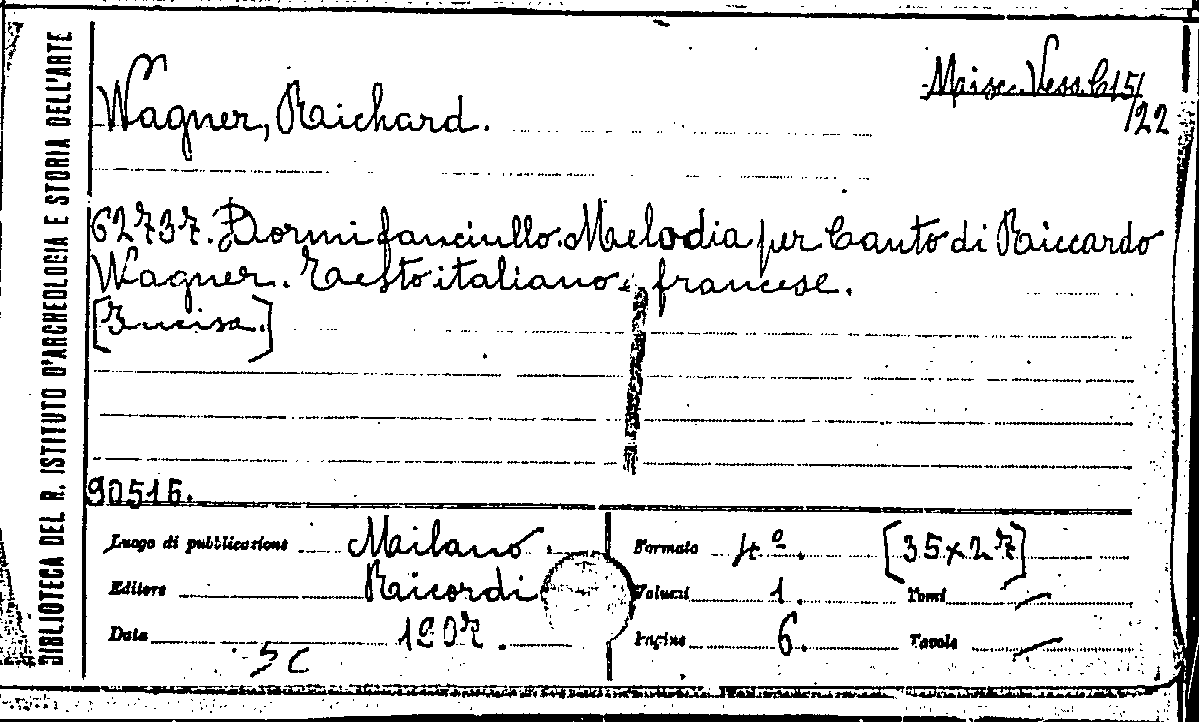 BIBLIOTECA DEL R. ISTITUTO D'ARCHEOLOGIA E STORIA DELL'ARTE
Misc. Vess. C15/
/22
Wagner, Richard.
62737. Dormi fanciullo. Melodia per Canto di Riccardo
Wagner. Testo italiano e francese.
[Incisa.]
90516.
Luogo di pubblicazione Milano.
Formato 4º. [35x27]
Editore Ricordi
Volumi 1. Tomi —
Data 1907.
Pagine 6. Tavole —
SC